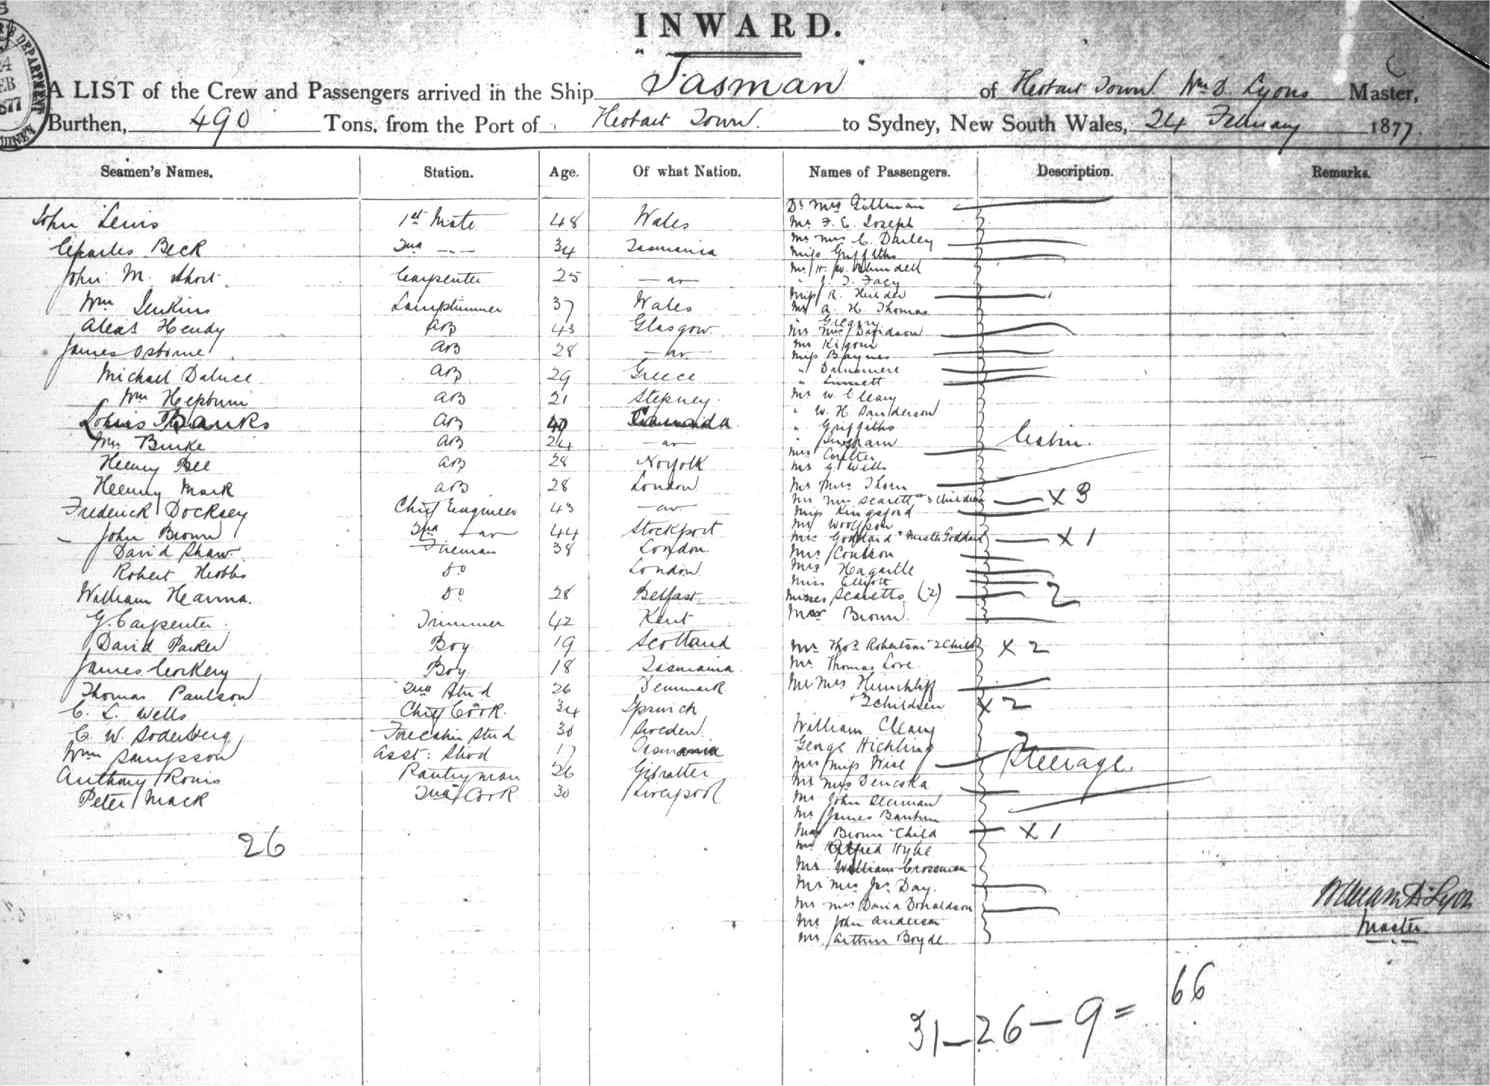 INWARD.
A LIST of the Crew and Passengers arrived in the Ship "Tasman" of Hobart Town Wm D. Lyons Master,
Burthen, 490 Tons, from the Port of Hobart Town. to Sydney, New South Wales, 24 February 1877.
Seamen's Names. Station. Age. Of what Nation. Names of Passengers. Description. Remarks.
John Lewis 1st Mate 48 Wales
Charles Beck 2nd 34 Tasmania
John M. Short Carpenter 25
Wm Jenkins Lamptrimmer 37 Wales
Alexr Hendy AB 43 Glasgow
James Osborne AB 28
Michael AB 29 Greece
Wm Hepburn AB 21 Stepney
Louis Banks AB 40 Canada
Wm Burke AB 24
Henry Bee AB 28 Norfolk
Henry Mark AB 28 London
Frederick Docksey Chief Engineer 43
John Brown 2nd 44 Stockport
David Shaw Fireman 38 London
Robert Hobbs Do London
William Hanna Do 28 Belfast
G. Carpenter Trimmer 42 Kent
David Parker Boy 19 Scotland
James Corkery Boy 18 Tasmania
Thomas Paulson 2nd Stud 26 Denmark
C. L. Wells Chief Cook. 34 Ipswich
C. W. Soderberg Forecabin Stud 30 Sweden
Wm Sampson Asst: Stud 17
Anthony Pantryman 26 Gibralter
Peter Mack 2nd Cook 30 Liverpool
26
Dr Mrs Gillman
Mr F. E. Joseph
Mr Mrs C. Darley
Miss Griffiths
Mr H. W.
J. T. Facy
Miss R.
Mr A. H. Thomas
Gregory
Mr Mrs Davidson
Mr Kilgour
Miss Baynes
Mr W. Cleary
W. H. Sanderson
Griffiths
Ingham
Mrs Coulter
Mr G. Wells
Mr Mrs Thorn
Mr Mrs Scarett & 3 Children X 3
Miss Kingsford
Mr Woolfson
Mrs Goddard & Master Goddard X 1
Mrs Coulson
Mrs
Miss Elliott
Misses Scaretts (2) 2
Brown
Cabin.
Mr Thos Robertson 2 Child X 2
Mr Thomas Love
Mr Mrs Hinchliff
2 children X 2
William Cleary
George Hickling
Mrs Miss Wise
Mr Miss
Mr John
Mr James
Brown Child X 1
Mr Alfred Hyde
Mr William Crossman
Mr Mrs Jas Day.
Mr Mrs David Donaldson
Mr John Anderson
Mr Arthur Boyde
Steerage
William D. Lyons
Master
31-26-9= 66